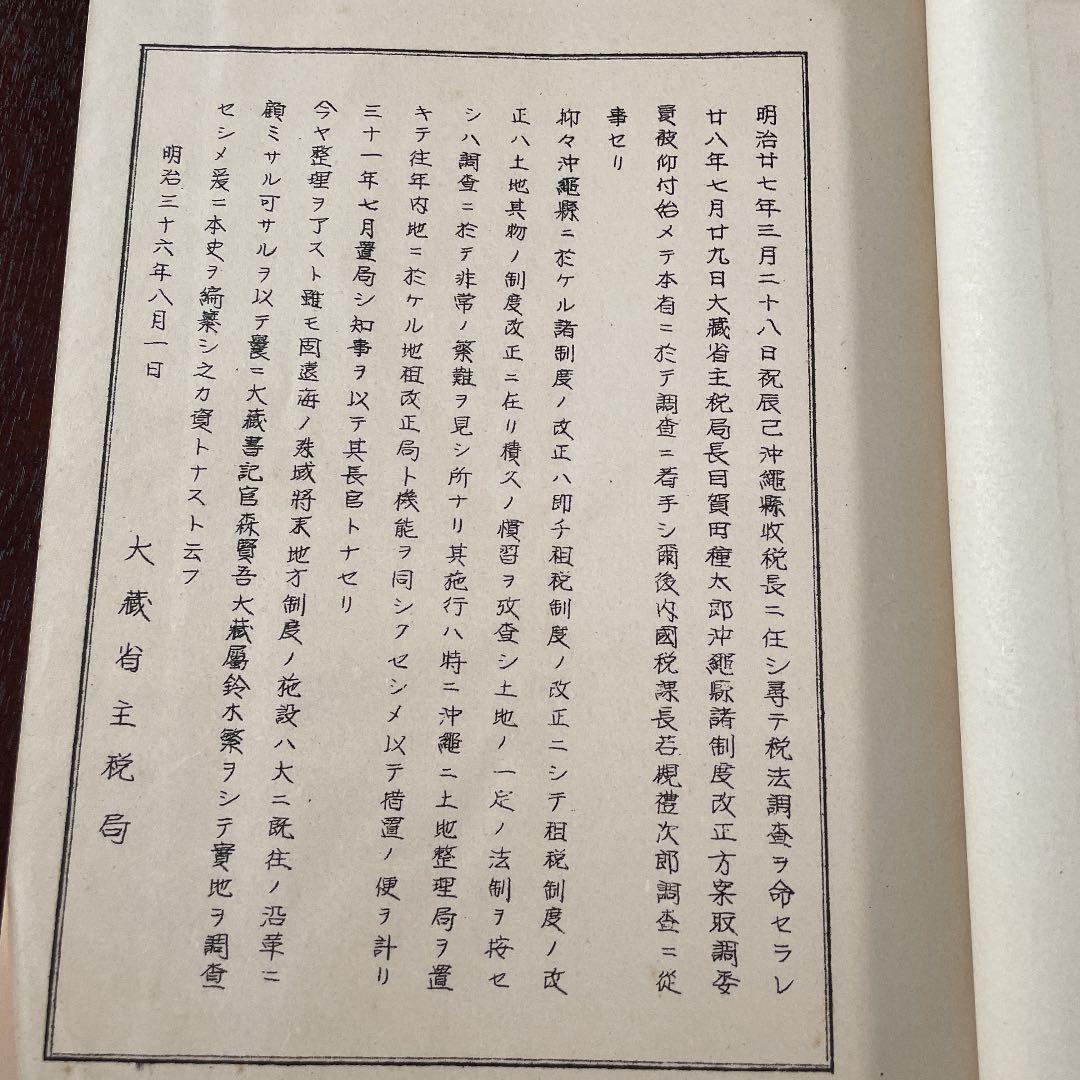 明治廿七年三月二十八日祝辰己沖繩縣收税長ニ任シ尋テ税法調查ヲ命セラレ
廿八年七月廿九日大藏省主税局長目賀田種太郎沖繩縣諸制度改正方案取調委
員被仰付始メテ本省ニ於テ調查ニ着手シ爾後内國税課長若槻禮次郎調查ニ從
事セリ
抑々沖繩縣ニ於ケル諸制度ノ改正ハ即チ租税制度ノ改正ニシテ租税制度ノ改
正ハ土地其物ノ制度改正ニ在リ積久ノ慣習ヲ攷查シ土地ノ一定ノ法制ヲ按セ
シハ調查ニ於テ非常ノ繁難ヲ見シ所ナリ其施行ハ特ニ沖繩ニ土地整理局ヲ置
キテ往年内地ニ於ケル地租改正局ト機能ヲ同シクセシメ以テ措置ノ便ヲ計リ
三十一年七月置局シ知事ヲ以テ其長官トナセリ
今ヤ整理ヲ了スト雖モ固遠海ノ殊域將来地方制度ノ施設ハ大ニ既往ノ沿革ニ
顧ミサル可サルヲ以テ曩ニ大藏書記官森賢吾大藏屬鈴木繁ヲシテ實地ヲ調查
セシメ爰ニ本史ヲ編纂シ之カ資トナスト云フ
明治三十六年八月一日
大藏省主税局